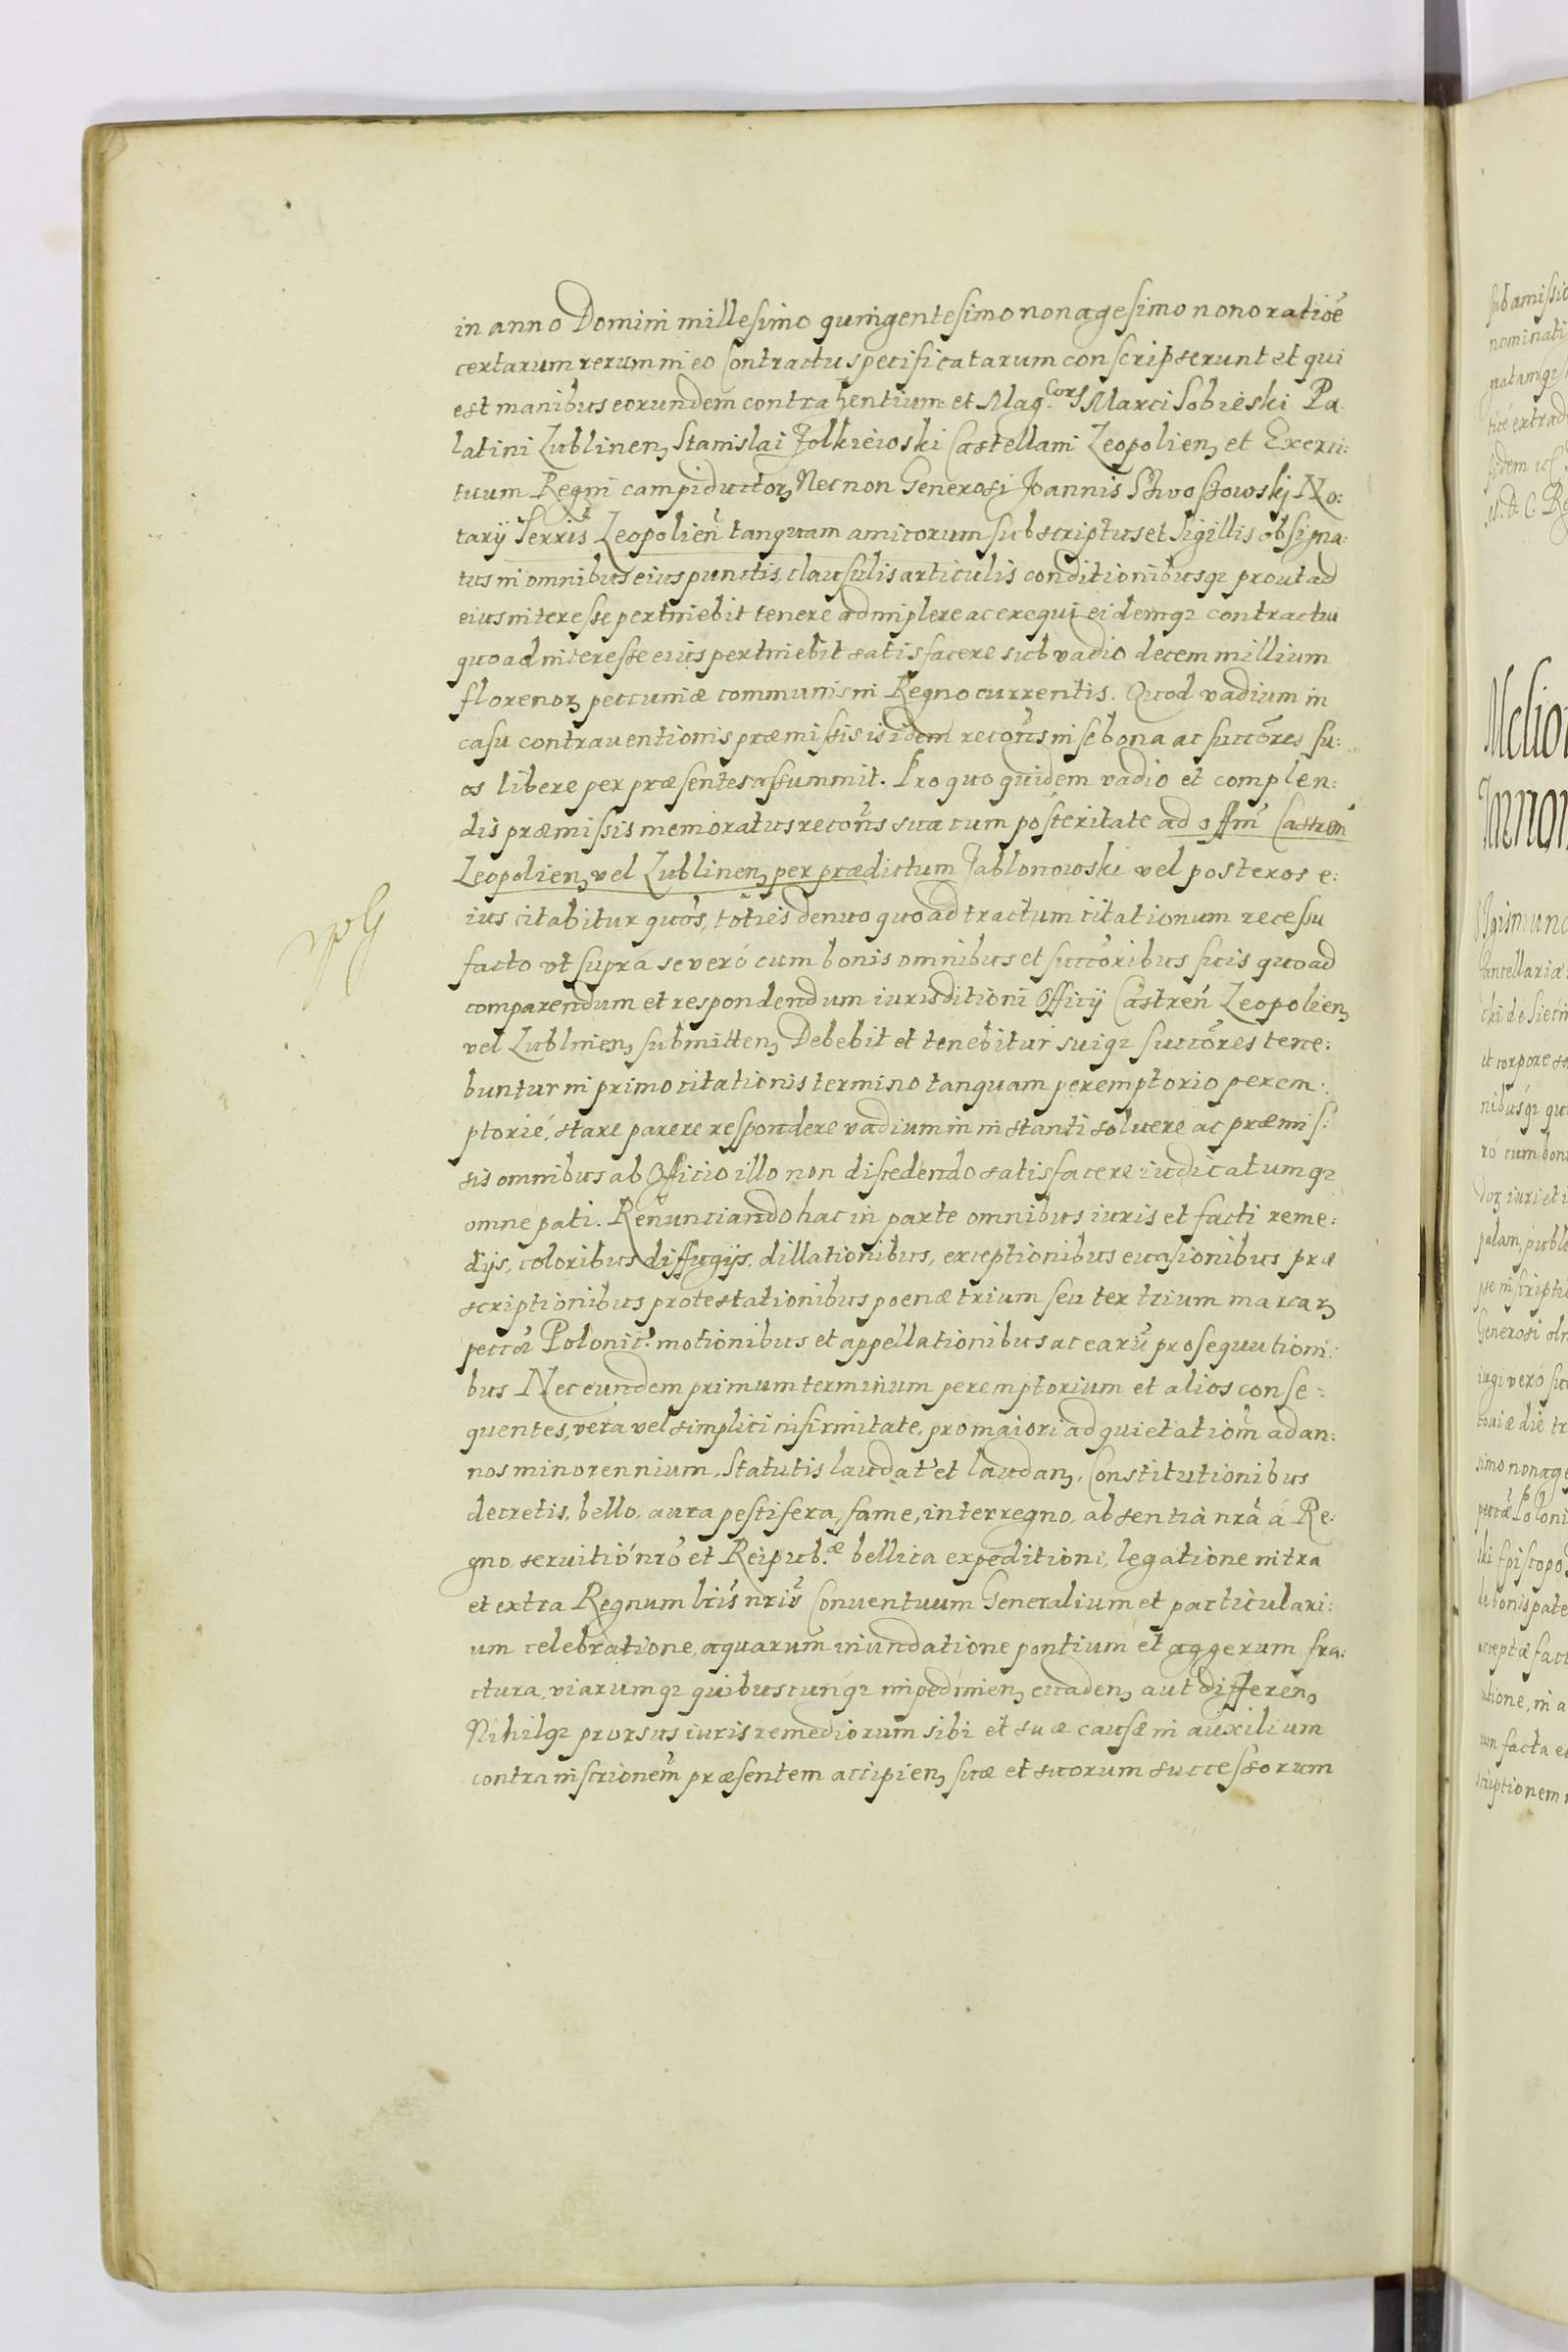 in anno Domini millesimo quingentesimo nonagesimo nono ratioē
certarum rerum in eo Contractu specificatarum conscripserunt et qui
est manibus eorundem contrahentium et Mag.corꝫ Marci Sobieski Pa
latini Lublinenꝫ Stanislai Zolkiewski Castellani Leopolienꝫ et Exerci:
tuum Regni campiductorꝫ Nec non Generosi Joannis No:
tarij Terris̄ Leopolien̄ tanquam amicorum subscriptus et Sigillis obsigna:
tus in omnibus eius punctis, clausulis articulis conditionibusqꝫ prout ad
eius interesse pertinebit tenere adimplere ac exequi eidemqꝫ contractui
quo ad interesse eius pertinebit satisfacere sub vadio decem millium
florenorꝫ peccuniæ communis in Regno currentis. Quod vadium in
casu contrauentionis præmissis isidem recon̄s in se bona ac succōres su:
os libere per præsentes assummit. Pro quo quidem vadio et complen:
dis præmissis memoratus recon̄s sua cum posteritate ad offm̄ Castren̄
Leopolienꝫ vel Lublinenꝫ per prædictum Jablonowski vel posteros e:
ius citabitur quōs, tōties denuo quo ad tractum citationum recessu
facto vt supra se veró cum bonis omnibus et succōribus suis quo ad
comparendum et respondendum iurisditioni Officij Castren̄ Leopolienꝫ
vel Lublinenꝫ submittenꝫ Debebit et tenebitur suiqꝫ succōres tene:
buntur in primo citationis termino tanquam peremptorio perem:
ptorié, stare parere respondere vadium in instanti soluere ac præmis:
sis omnibus ab Officio illo non discedendo satisfacere iudicatumqꝫ
omne pati. Renunciando hac in parte omnibus iuris et facti reme:
dijs, coloribus diffugijs, dillationibus, exceptionibus euasionibus præ
scriptionibus protestationibus poenæ trium seu ter trium marcarꝫ
peccōr Polonic̄. motionibus et appellationibus ac earū prosequutioni:
bus Nec eundem primum terminum peremptorium et alios conse:
quentes, vera vel simplici infirmitate, pro maiori ad quietatiōm ad an:
nos minorennium, Statutis laudat̄ et laudanꝫ, Constitutionibus
decretis, bello, aura pestifera, fame, interregno, absentia nrā á Re:
gno seruitió nrō et Reipub.æ bellica expeditione, legatione intra
et extra Regnum lrīs nrīs Conuentuum Generalium et particulari:
um celebratione, aquarum inundatione pontium et aggerum fra:
ctura, viarumqꝫ quibuscunqꝫ impedimienꝫ euadenꝫ aut differenꝫ
Nihilqꝫ prorsus iuris remediorum sibi et suæ causæ in auxilium
contra inscrionem̄ præsentem accipienꝫ suæ et suorum successorum